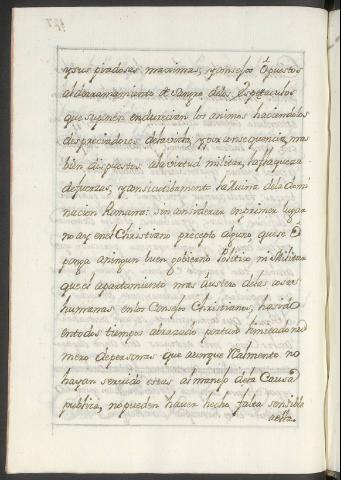 ysus piadosas maximas, yconsejos Opuestos
alderramamiento de sangre delos Espectaculos
que suponen endurecian los animos haciendolos
despreciadores delavida, yporconsequencia, mas
bien dispuestos alavirtud militar, laflaqueza
defuerzas, yconsecutibamente laRuina dela Domi
nacion Romana: sin considerar enprimer lugar
no ay enel Christiano precepto alguno, quese O
ponga aningun buen gobierno Politico ni Militar
queel apartamiento mas Austero delas cosas
humanas enlos Consejos Christianos, hasido
entodos tiempos abrazado portan limitado nu
mero depersonas que aunque Realmente no
hayan servido estas almanejo dela Causa
publica, nopueden haver hecho falta sensible
aella.